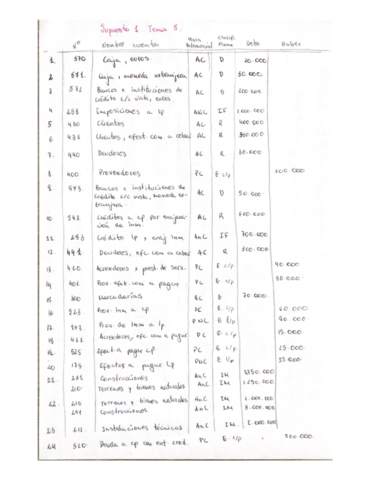 Supuesto 1. Tema 5.
Nº Nombre cuenta Masa Patrimonial Clasif. Debe Haber
1. 570 Caja, euros. AC D 20.000
2. 571 Caja, moneda extranjera AC D
3. 572 Bancos e instituciones de crédito c/c vista, euros AC D 200.000
4. Imposiciones a lp ANC IF
5. 430 Clientes AC R 400.000
6. 431 Clientes, efect. com. a cobrar AC R
7. 440 Deudores AC R
8. 400 Proveedores PC E c/p 100.000
9. 573 Bancos e instituciones de crédito c/c vista, moneda extranjera AC D 50.000
10. 543 Créditos a cp por enajenación de inm. AC R
11. 253 Créditos lp x enaj inm AnC IF 700.000
12. 441 Deudores, efc com a cobrar AC R
13. 410 Acreedores x prest. de serv. PC E c/p
14. 401 Prov. efect. com a pagar PC E c/p
15. 300 Mercaderías AC E 70.000
16. 523 Prov. inm a cp PC E c/p 60.000
17. 173 Prov de inm a lp PNC E l/p
18. 411 Acreedores, efc com a pagar PC E c/p 15.000
19. 525 Efect a pagar cp PC E c/p
20. 175 Efectos a pagar lp PNC E l/p
21. 211 Construcciones AnC IM
210 Terrenos y bienes naturales AnC IM
22. 210 Terrenos y bienes naturales AnC IM
211 Construcciones AnC IM
23. 212 Instalaciones técnicas AnC IM
24. 520 Deuda a cp con ent. cred. PC E c/p